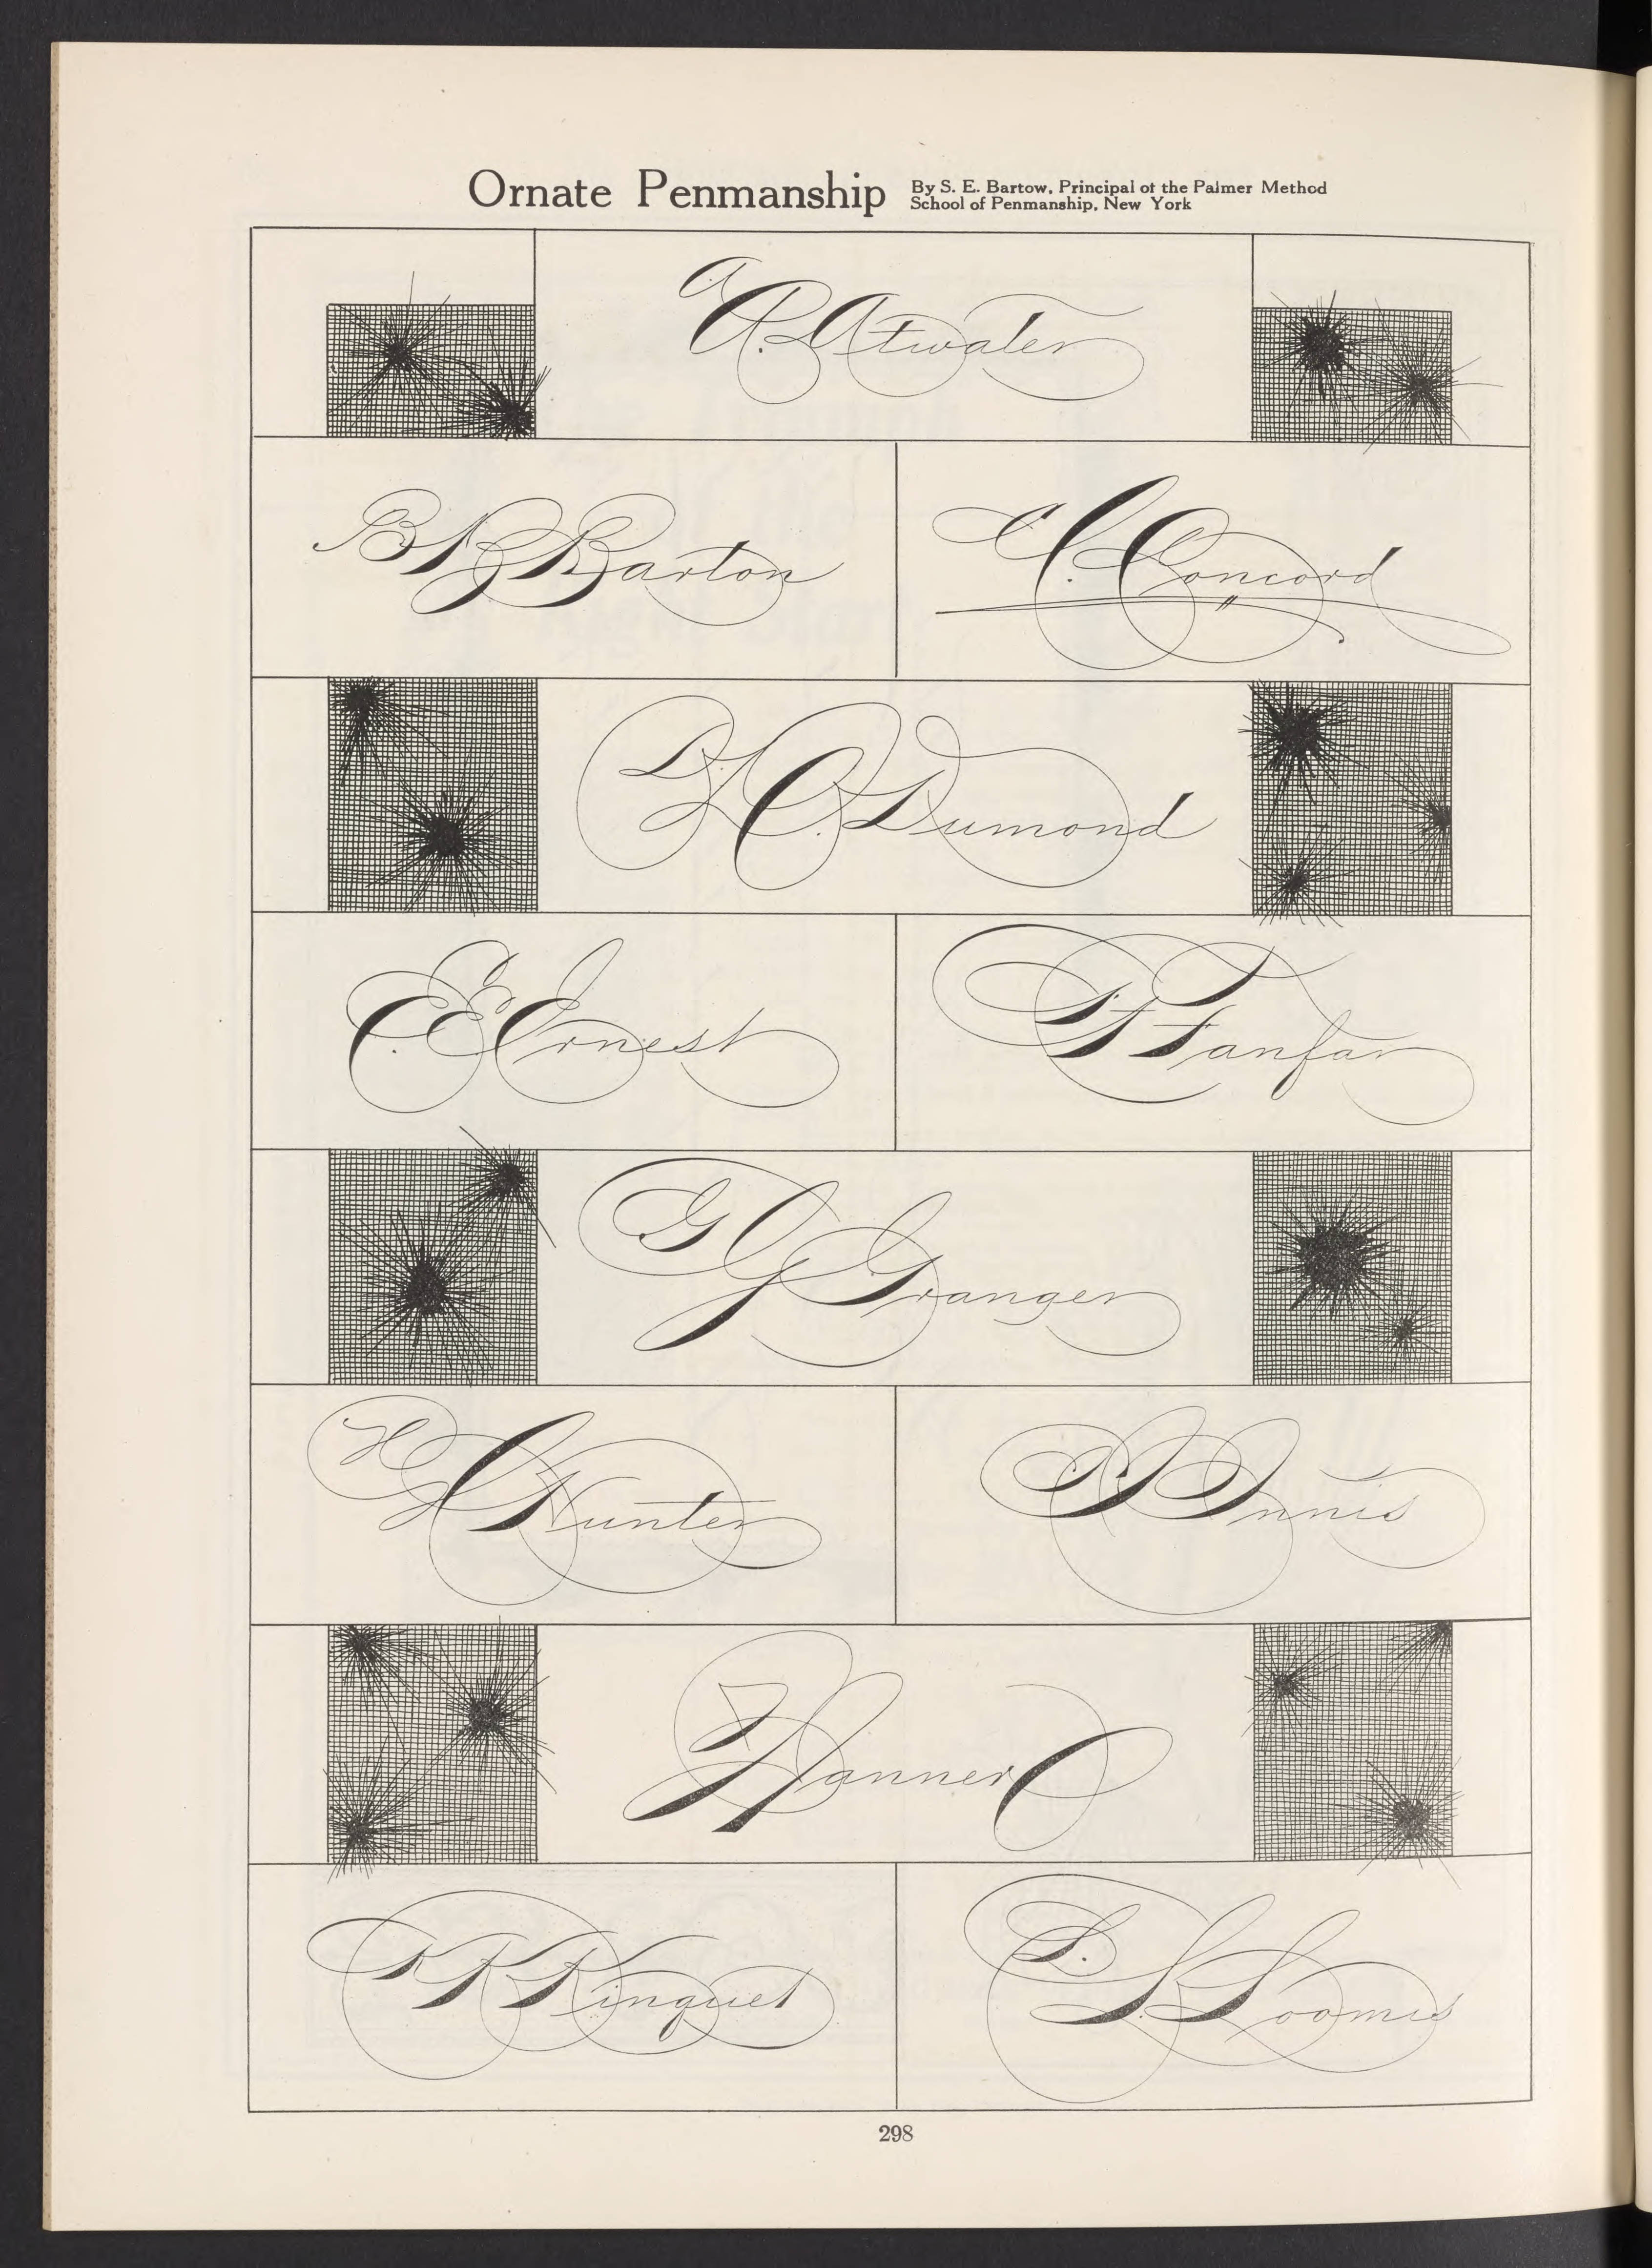 Ornate Penmanship
By S. E. Bartow, Principal of the Palmer Method
School of Penmanship, New York
A. A. Atwater
B B Barton
C C. Concord
D. C. Dumond
E. E. Ernest
F F Fanfar
G G Granger
H Hunter
I I Innis
Hanner
K K Kinguet
L. L. Loomis
298